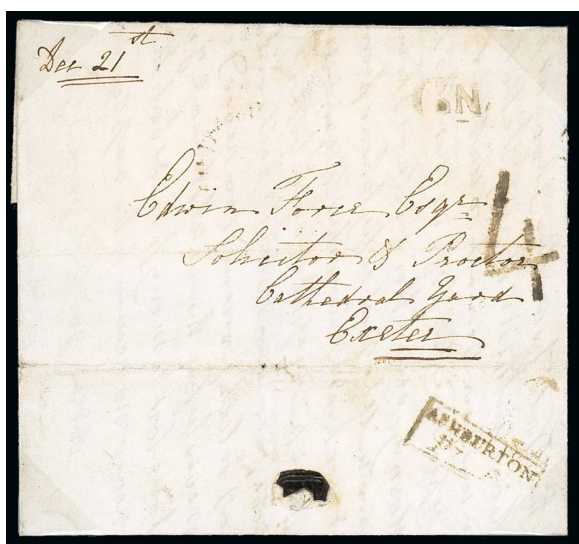 Dec 21st
.N
Edwin Force Esqr
Solicitor & Proctor
Cathedral Yard
Exeter
4
ASHBURTON